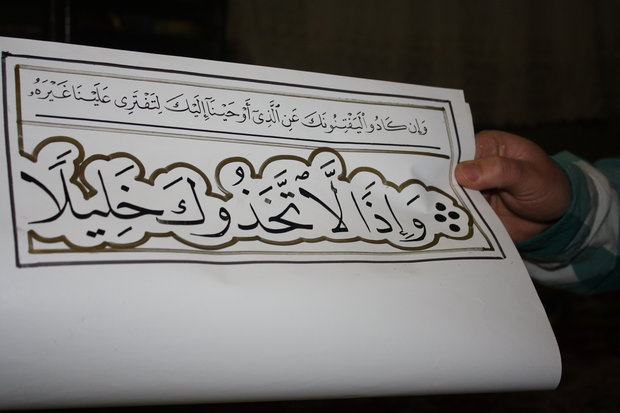 وَإِن كَادُوا لَيَفْتِنُونَكَ عَنِ الَّذِىٓ أَوْحَيْنَآ إِلَيْكَ لِتَفْتَرِىَ عَلَيْنَا غَيْرَهُۥ
وَإِذًا لَّاتَّخَذُوكَ خَلِيلًا